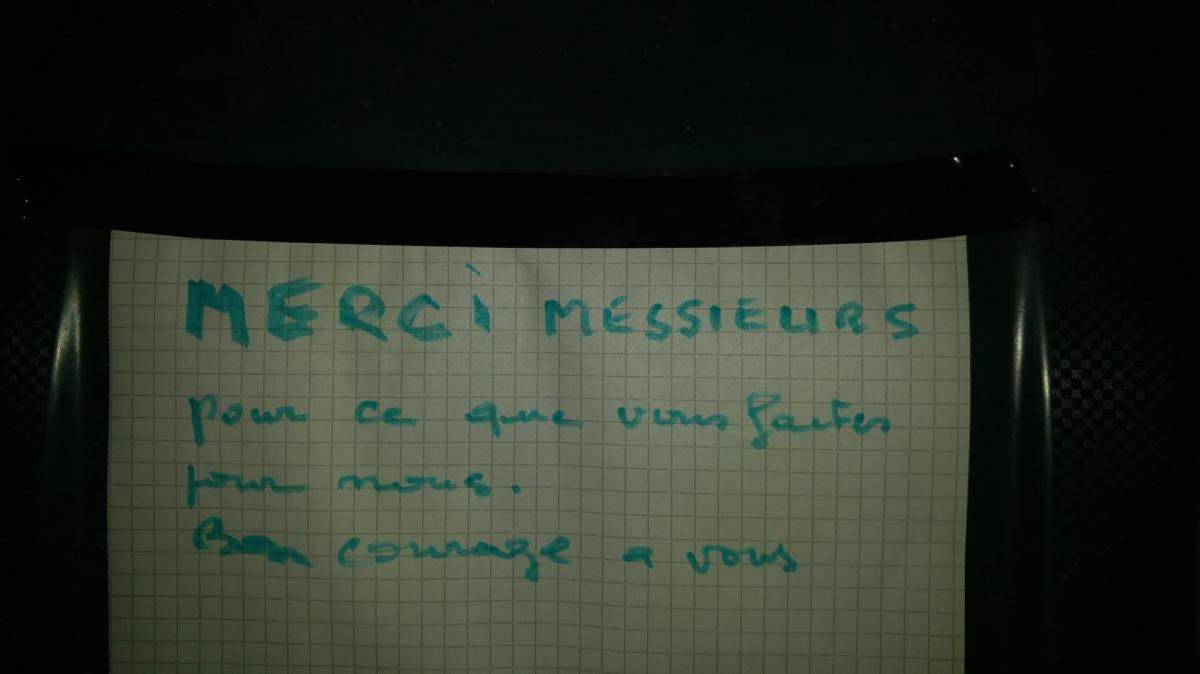 MERCI MESSIEURS
pour ce que vous faites
pour nous.
Bon courage a vous